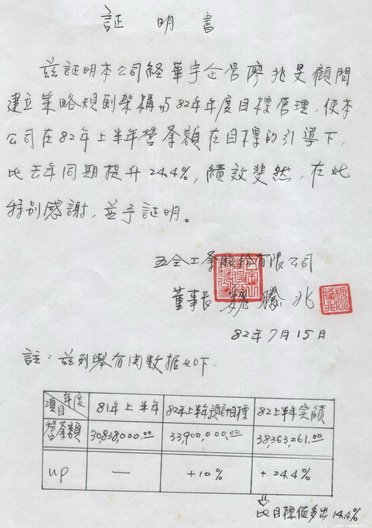 証明書
茲証明本公司經華宇企管廖兆旻顧問
建立策略規劃架構与82年年度目標管理,使本
公司在82年上半年營業額在目標的引導下,
比去年同期提升24.4%,績效斐然,在此
特別感謝,並予証明。
五全工業股份有限公司
董事長 魏勝兆
82年7月15日
註:茲列舉有関數据如下:
年度 項目 81年上半年 82年上半年預測目標 82上半年実績
營業額 30,838,000.00 33,900,000.00 38,363,261.00
up — +10% +24.4%
比目標值多出14.4%